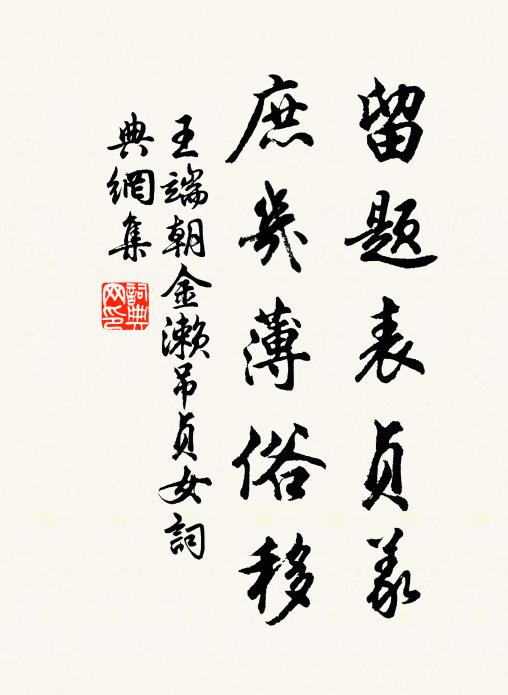 留题表贞義
庶幾薄俗移
王端朝金瀨吊貞女詞
典網集
詞典網印